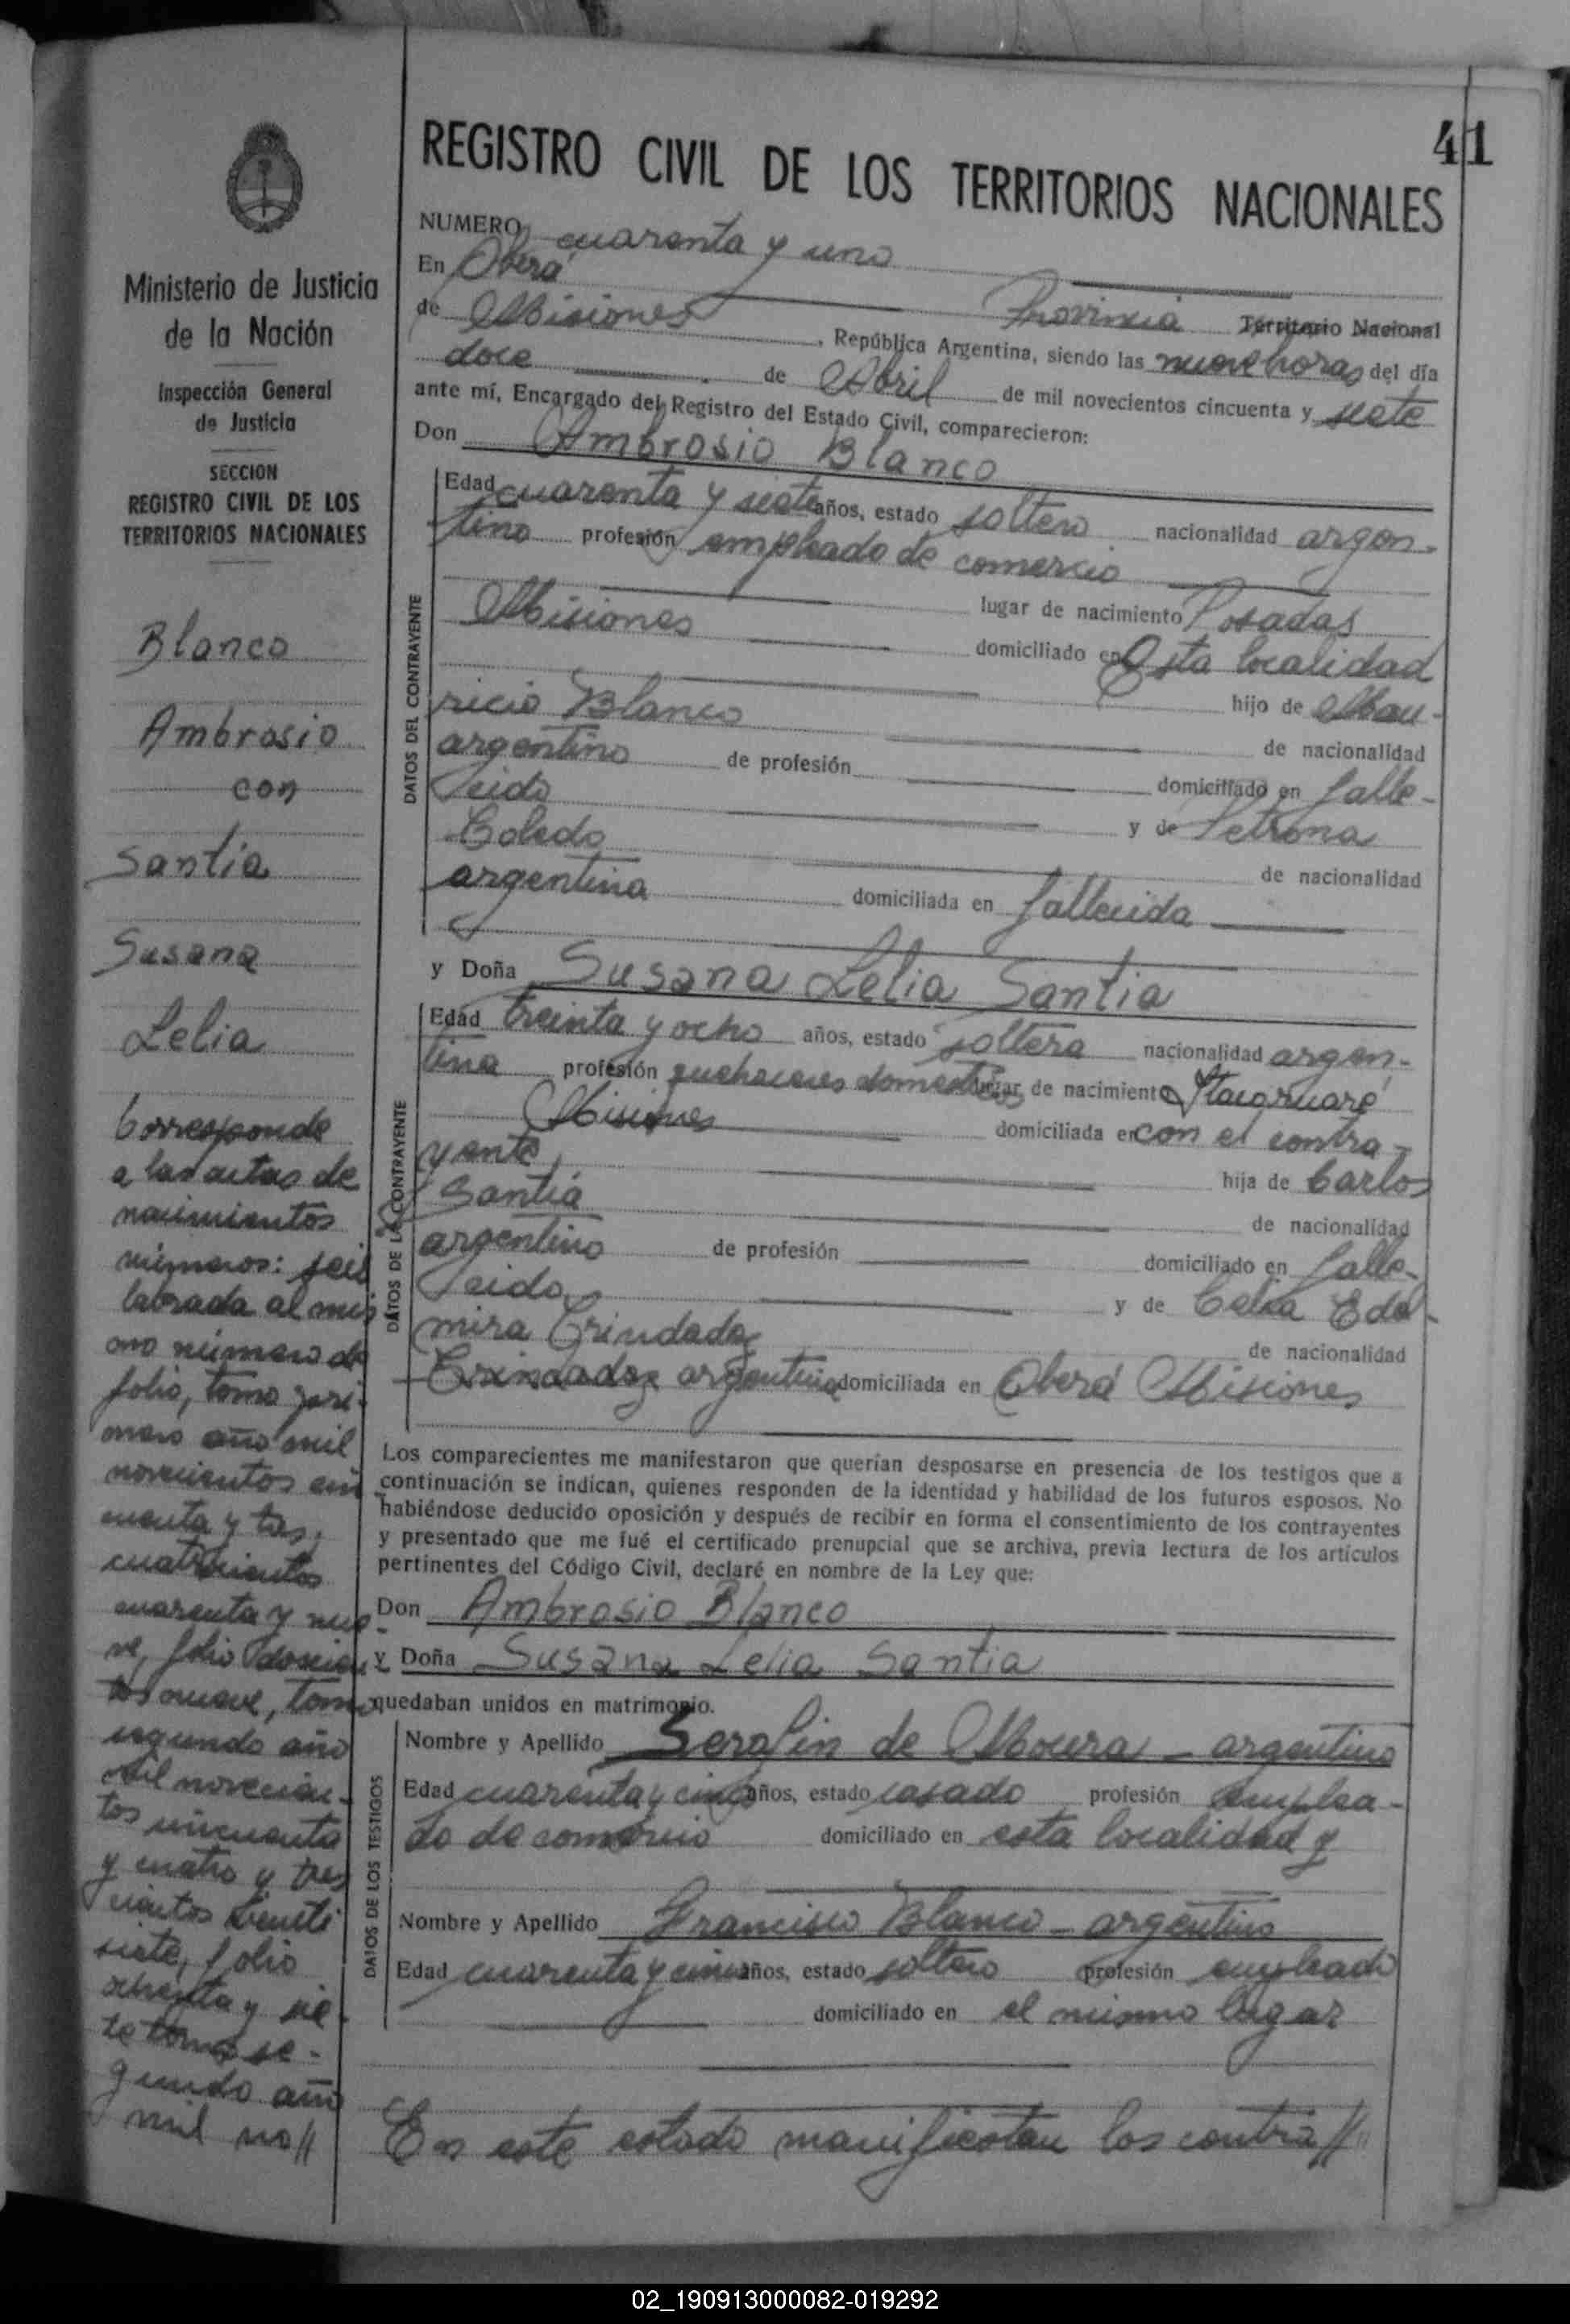 41
REGISTRO CIVIL DE LOS TERRITORIOS NACIONALES
Ministerio de Justicia
de la Nación
Inspección General
de Justicia
SECCION
REGISTRO CIVIL DE LOS
TERRITORIOS NACIONALES
Blanco
Ambrosio
con
Santia
Susana
Lelia
Corresponde
a las actas de
nacimientos
números: seis
labrada al mis
mo número de
folio, tomo pri-
mero año mil
novecientos cin
cuenta y tres,
cuatrocientos
cuarenta y nue-
ve, folio doscien
tos nueve, tomo
segundo año
mil novecien-
tos cincuenta
y cuatro y tres
cientos veinti
siete, folio
ochenta y sie-
te tomo se-
gundo año
mil no//
NUMERO cuarenta y uno
En Oberá
de Misiones Provincia Territorio Nacional
, República Argentina, siendo las nueve horas del día
doce de Abril de mil novecientos cincuenta y siete
ante mí, Encargado del Registro del Estado Civil, comparecieron:
Don Ambrosio Blanco
DATOS DEL CONTRAYENTE
Edad cuarenta y siete años, estado soltero nacionalidad argen-
tino profesión empleado de comercio
lugar de nacimiento Posadas
Misiones domiciliado en Esta localidad
hijo de Mau-
ricio Blanco de nacionalidad
argentino de profesión domiciliado en falle-
cido y de Petrona
Toledo de nacionalidad
argentina domiciliada en fallecida
y Doña Susana Lelia Santia
DATOS DE LA CONTRAYENTE
Edad treinta y ocho años, estado soltera nacionalidad argen-
tina profesión quehaceres domesticos lugar de nacimiento Itacaruaré
Misiones domiciliada en con el contra-
yente hija de Carlos
Santia de nacionalidad
argentino de profesión domiciliado en falle-
cido y de Celia Edel-
mira Trindade de nacionalidad
argentina domiciliada en Oberá Misiones
Los comparecientes me manifestaron que querían desposarse en presencia de los testigos que a
continuación se indican, quienes responden de la identidad y habilidad de los futuros esposos. No
habiéndose deducido oposición y después de recibir en forma el consentimiento de los contrayentes
y presentado que me fué el certificado prenupcial que se archiva, previa lectura de los artículos
pertinentes del Código Civil, declaré en nombre de la Ley que:
Don Ambrosio Blanco
y Doña Susana Lelia Santia
quedaban unidos en matrimonio.
DATOS DE LOS TESTIGOS
Nombre y Apellido Serafin de Moura - argentino
Edad cuarenta y cinco años, estado casado profesión emplea-
do de comercio domiciliado en esta localidad y
Nombre y Apellido Francisco Blanco - argentino
Edad cuarenta y cinco años, estado soltero profesión empleado
domiciliado en el mismo lugar
En este estado manifiestan los contra//
02_190913000082-019292